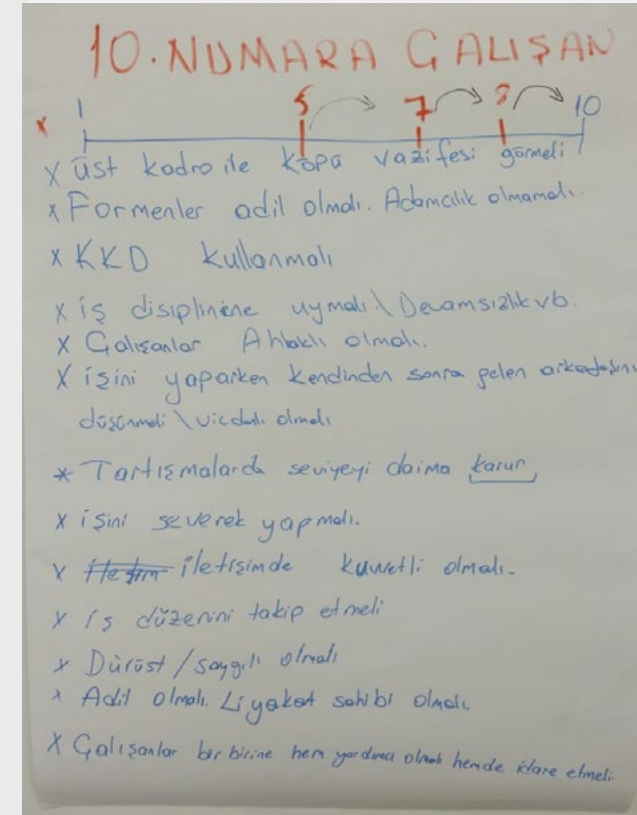 10. NUMARA ÇALIŞAN
x 1 5 7 8 10
x üst kadro ile köprü vazifesi görmeli
x Formenler adil olmalı. Adamcılık olmamalı.
x KKD kullanmalı
x iş disiplinine uymalı \ Devamsızlık vb.
x Çalışanlar Ahlaklı olmalı.
x işini yaparken kendinden sonra gelen arkadaşını
düşünmeli \ vicdanlı olmalı
* Tartışmalarda seviyeyi daima korur
x işini severek yapmalı.
x iletişimde kuvvetli olmalı.
x iş düzenini takip etmeli
x Dürüst / saygılı olmalı
x Adil olmalı. Liyakat sahibi olmalı
x Çalışanlar bir birine hem yardımcı olmalı hemde idare etmeli